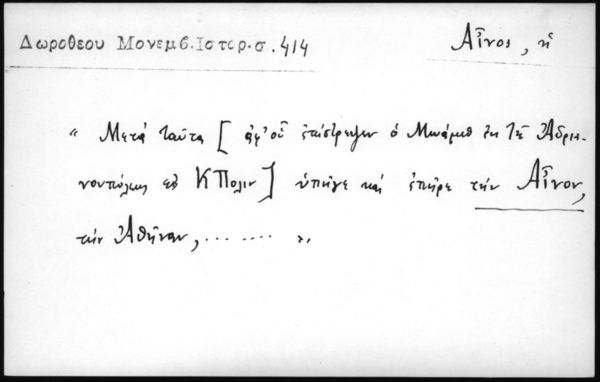 Δωροθεου Μονεμβ.Ιστορ.σ.414
Αἶνος, ἡ
« Μετὰ ταῦτα [ ἀφ' οὗ ἐπέστρεψεν ὁ Μωάμεθ ἐκ τῆς Ἀδρια-
νουπόλεως εἰς ΚΠολιν ] ὑπῆγε καὶ ἐπῆρε τὴν Αἶνον,
τὴν Ἀθῆναν, ........ »,